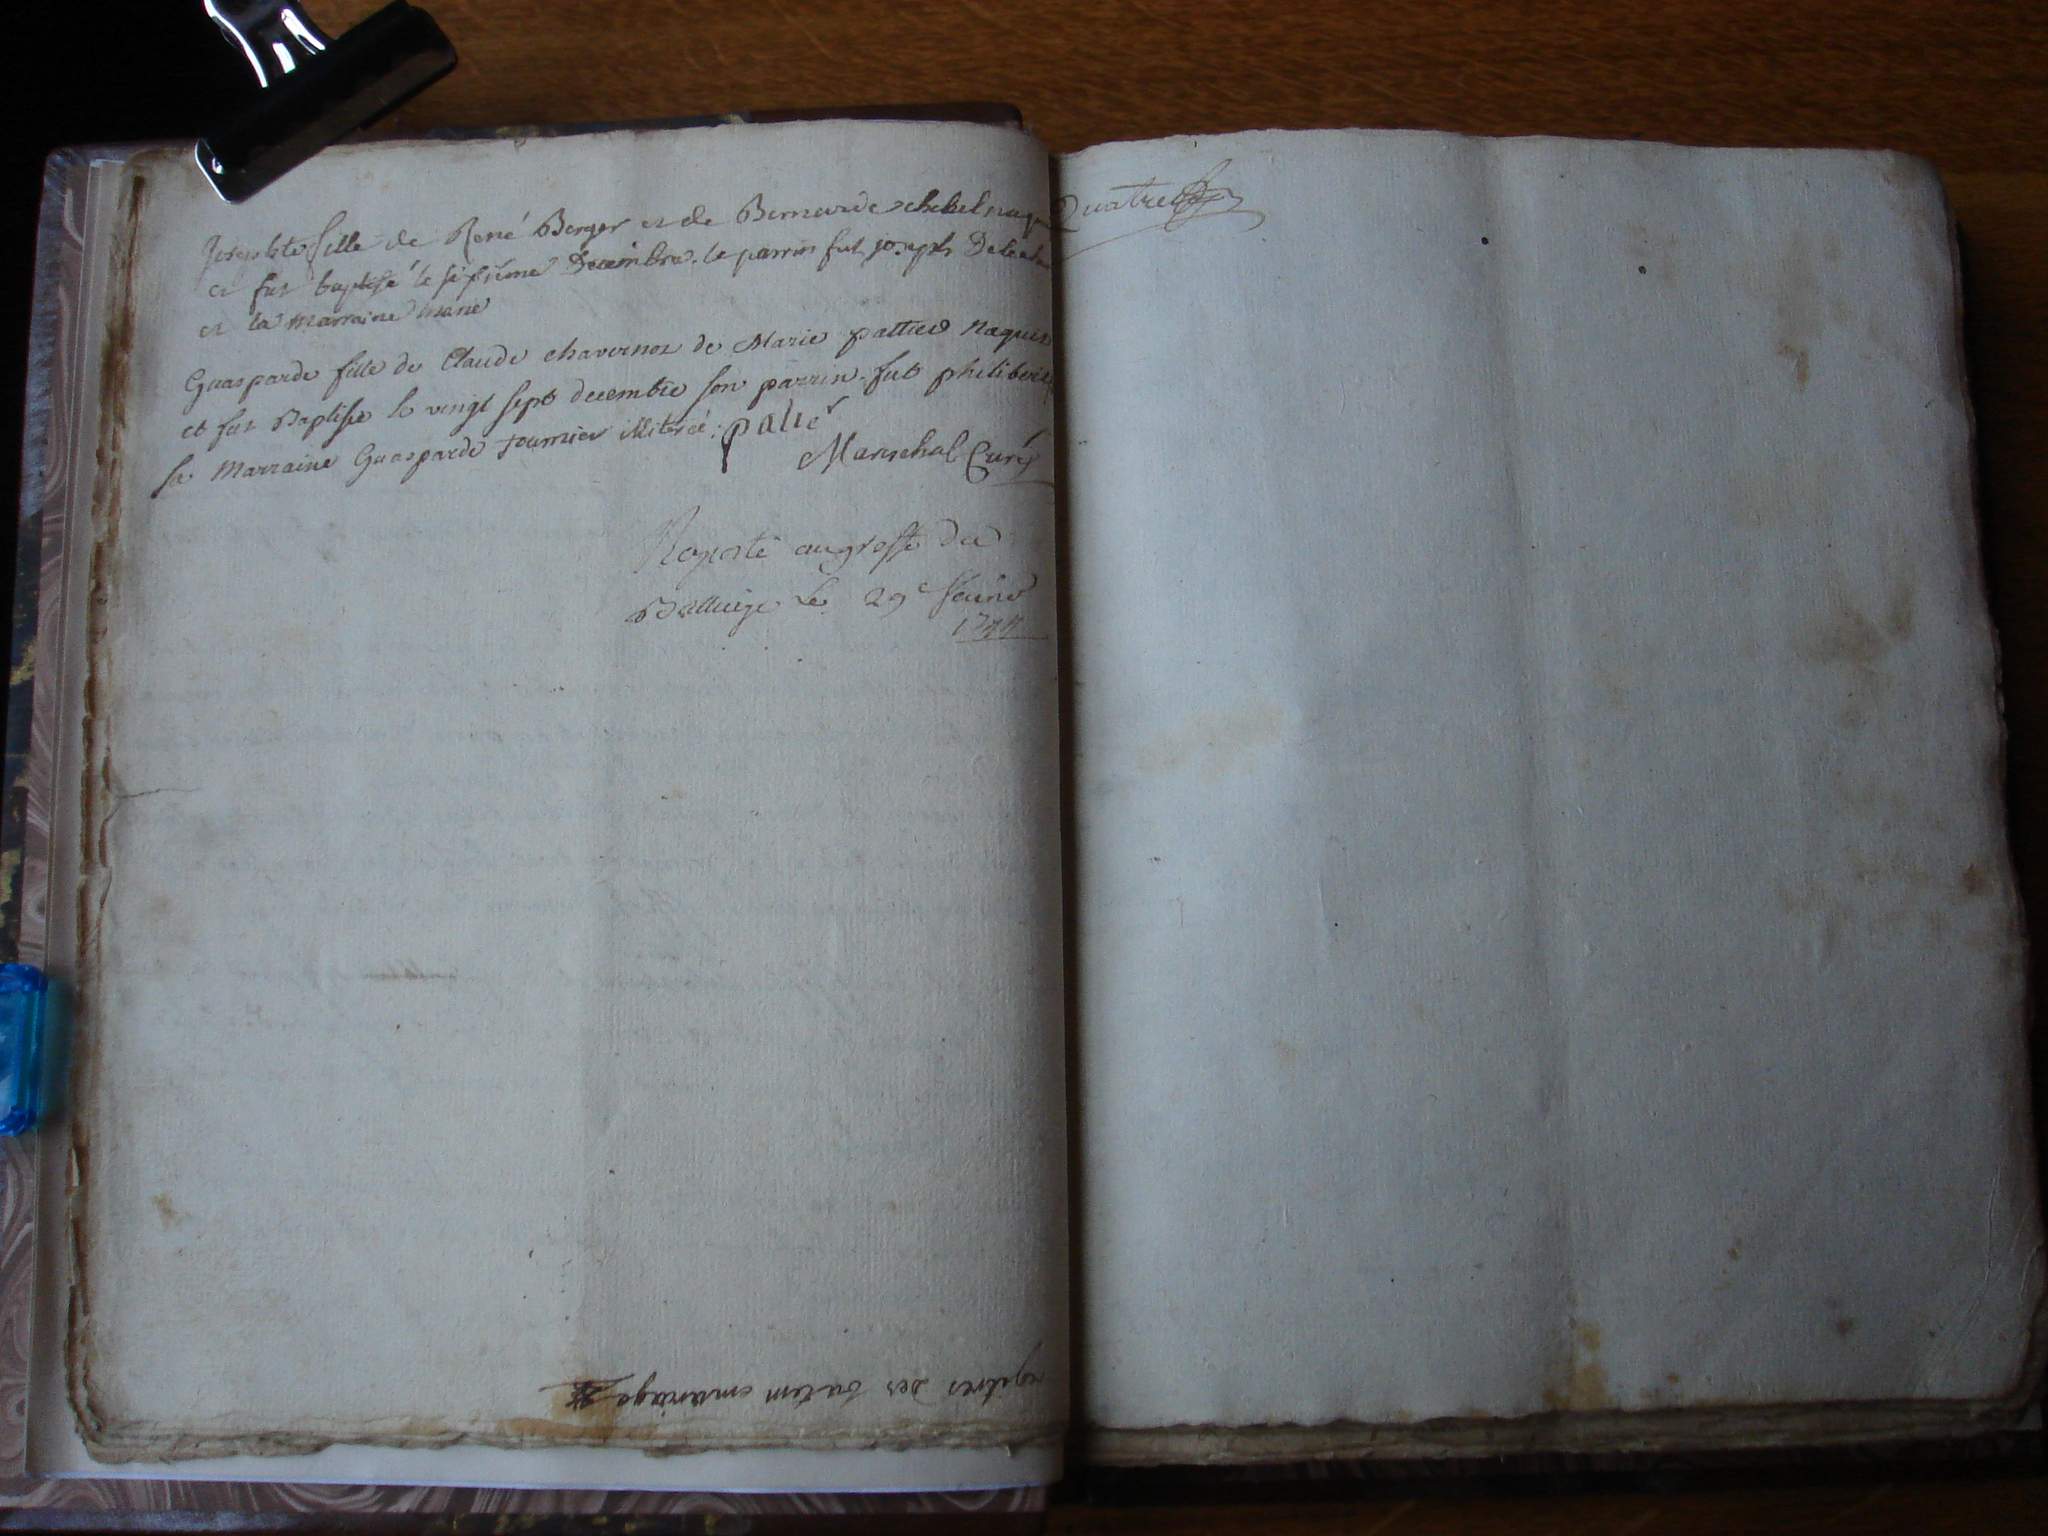 fille de René Berger et de Bernarde chebel naqui
et fut baptisé le sixsieme Decembre. le parrin fut joseph
et la marraine marie
Guasparde fille de Claude chavernoz de Marie pattier naquis
et fut Baptisée le vingt sept decembre son parrin. fut philibert
sa Marraine Guasparde fournier illiteré: pattier
Mareschal Curé
Reporté au greffe du
Balliage le 29e
Quatre
des batem emariage